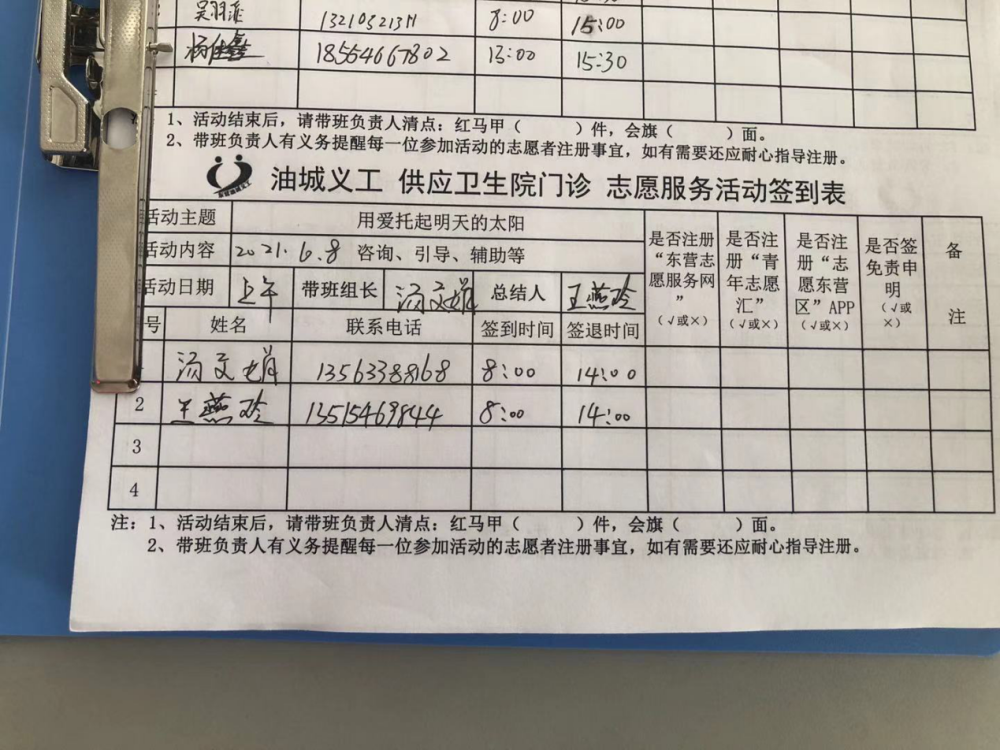 吴羽派 132103213 8:00 15:00
18554667802 13:00 15:30
1、活动结束后，请带班负责人清点：红马甲（ ）件，会旗（ ）面。
2、带班负责人有义务提醒每一位参加活动的志愿者注册事宜，如有需要还应耐心指导注册。
油城义工 供应卫生院门诊 志愿服务活动签到表
活动主题 用爱托起明天的太阳
活动内容 2021.6.8 咨询、引导、辅助等
活动日期 上午 带班组长 汤文娟 总结人 王燕玲
是否注册“东营志愿服务网”（√或×）
是否注册“青年志愿汇”（√或×）
是否注册“志愿东营区”APP（√或×）
是否签免责申明（√或×）
备注
号 姓名 联系电话 签到时间 签退时间
汤文娟 13563388168 8:00 14:00
2 王燕玲 13515469844 8:00 14:00
3
4
注：1、活动结束后，请带班负责人清点：红马甲（ ）件，会旗（ ）面。
2、带班负责人有义务提醒每一位参加活动的志愿者注册事宜，如有需要还应耐心指导注册。